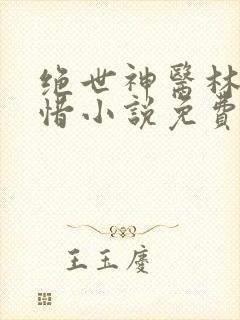 绝世神醫林
惜小説免費
王玉慶